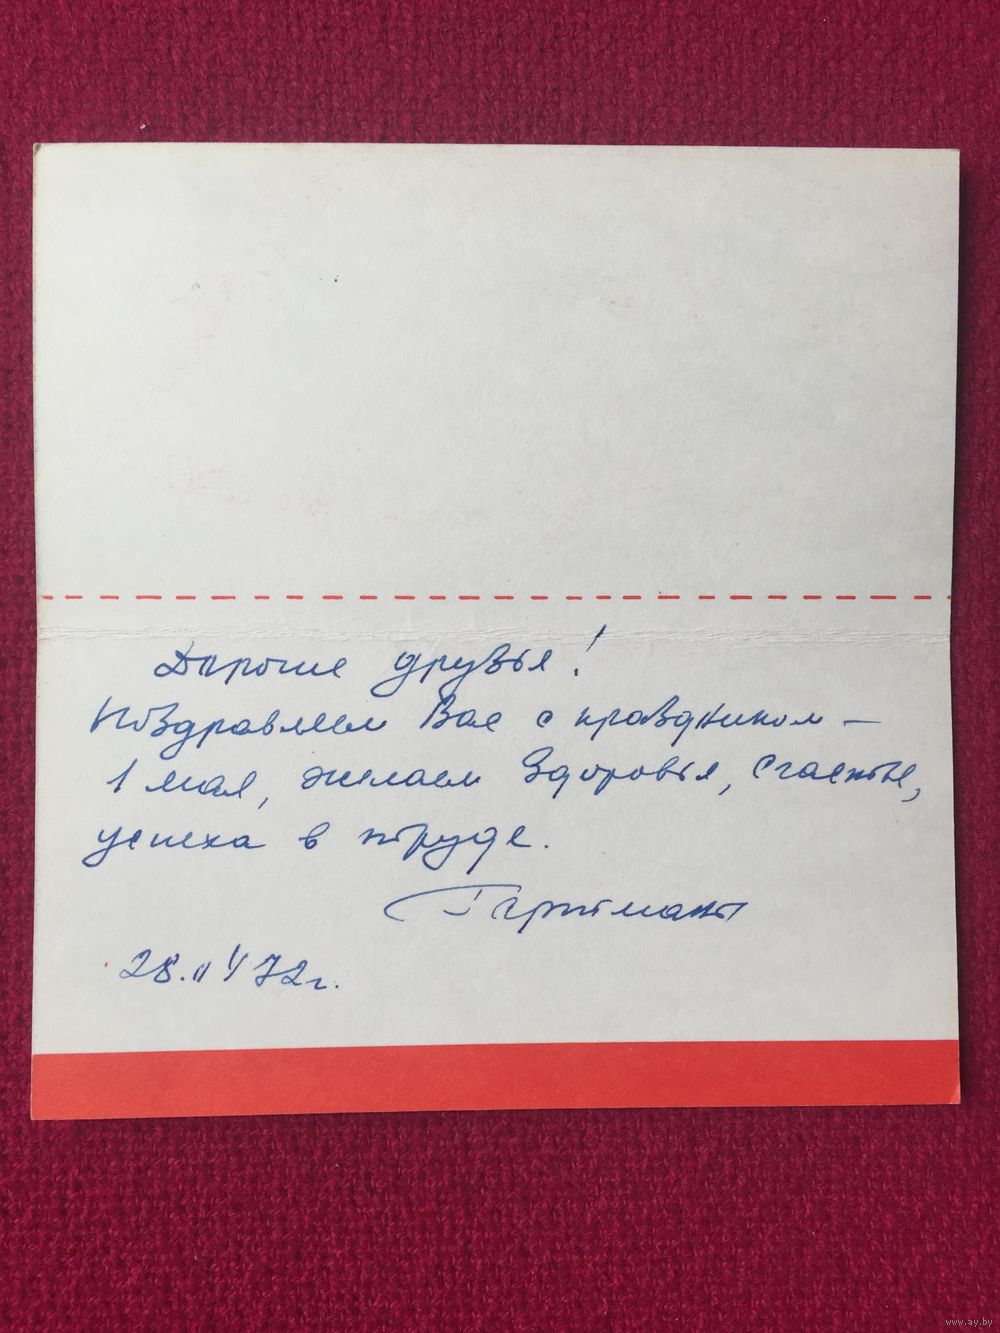 Дорогие друзья!
Поздравляем Вас с праздником –
1 мая, желаем здоровья, счастья,
успеха в труде.
28.IV 72г.
www.ay.by